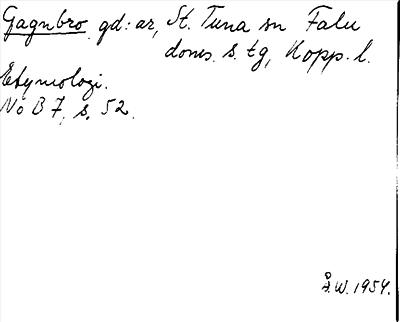 Gagnbro, gd:ar, St. Tuna sn Falu
doms. s. tg, Kopp. l.
Etymologi.
NoB 7, s. 52.
Å.W. 1954.